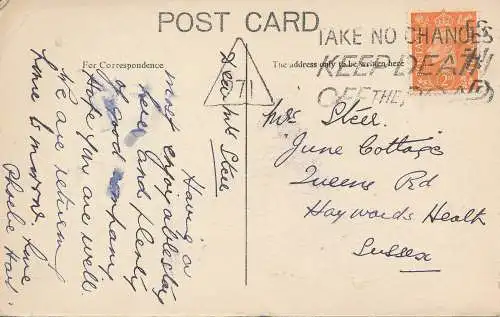 POST CARD
TAKE NO CHANCES
KEEP DEATH
OFF THE ROAD
For Correspondence
The address only to be written here
71
Dear Mrs Steer
Having a
most enjoyable stay
here and plenty
of good company
Hope you are well.
We are returning
home tomorrow. Love
Phoebe
Mrs Steer.
June Cottage
Queens Rd
Haywards Heath
Sussex